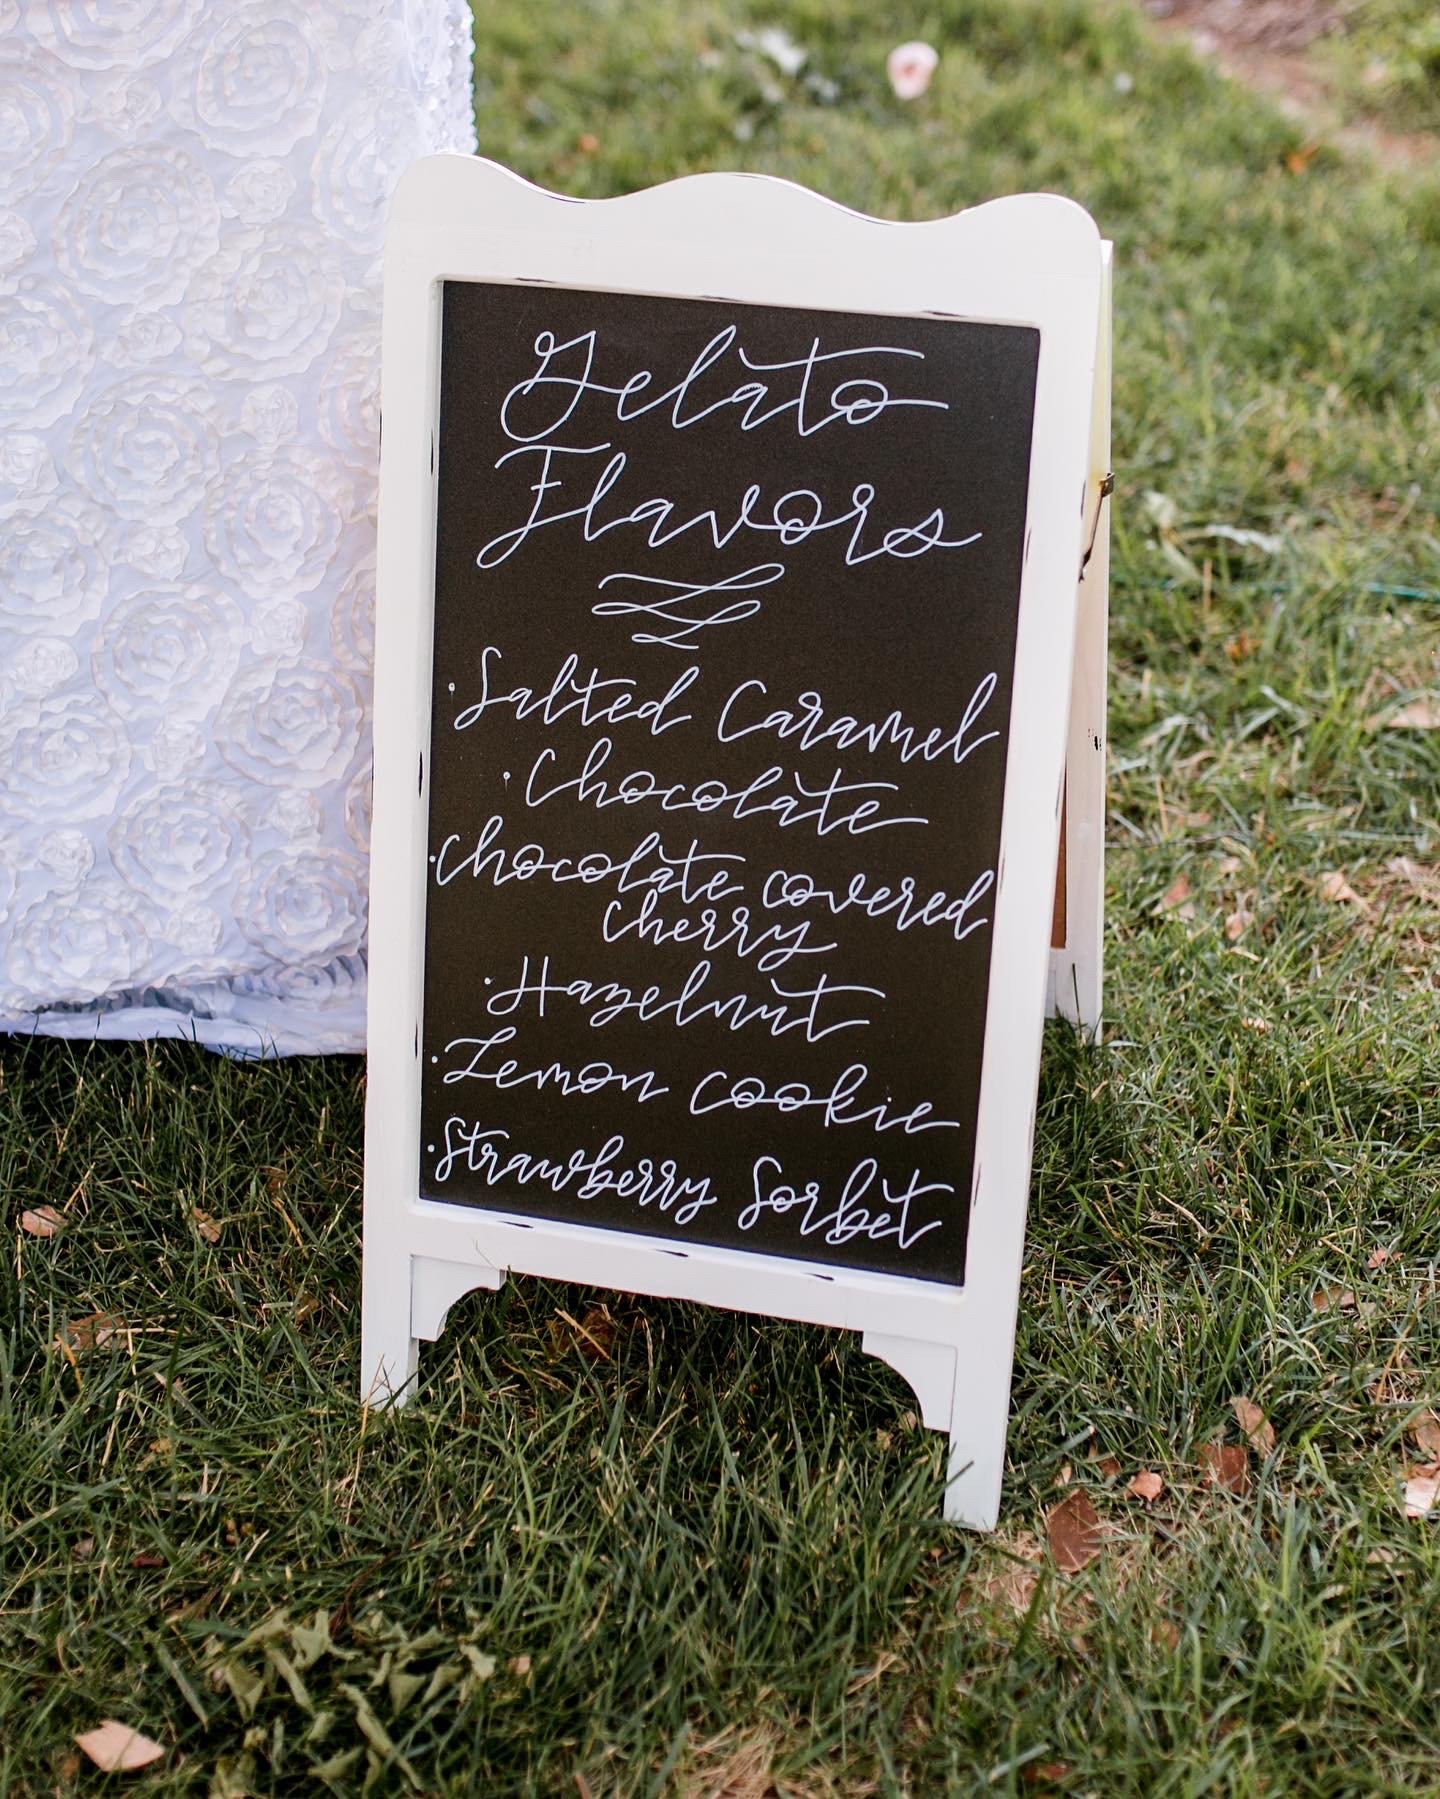 Gelato
Flavors
· Salted Caramel
· Chocolate
· Chocolate covered
cherry
· Hazelnut
· Lemon Cookie
· Strawberry Sorbet